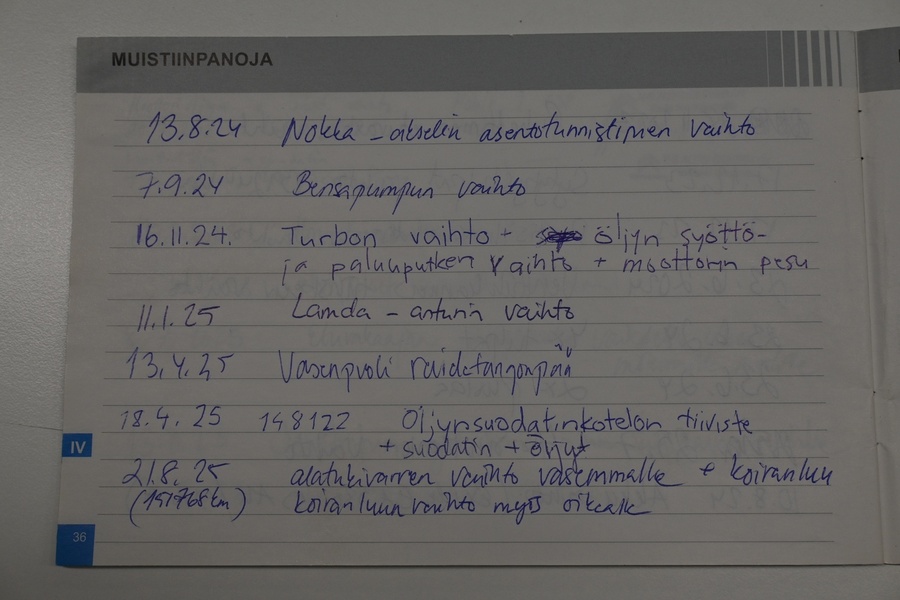 MUISTIINPANOJA
13.8.24 Nokka-akselin asentotunnistimen vaihto
7.9.24 Bensapumpun vaihto
16.11.24. Turbon vaihto + öljyn syöttö-
ja paluuputken vaihto + moottorin pesu
11.1.25 Lamda-anturin vaihto
13.4.25 Vasenpuoli raidetangonpää
18.4.25 148122 Öljynsuodatinkotelon tiiviste
+ suodatin + öljyt
IV
21.8.25 alatukivarren vaihto vasemmalle + koiranluu
(151768km) koiranluun vaihto myös oikealle
36